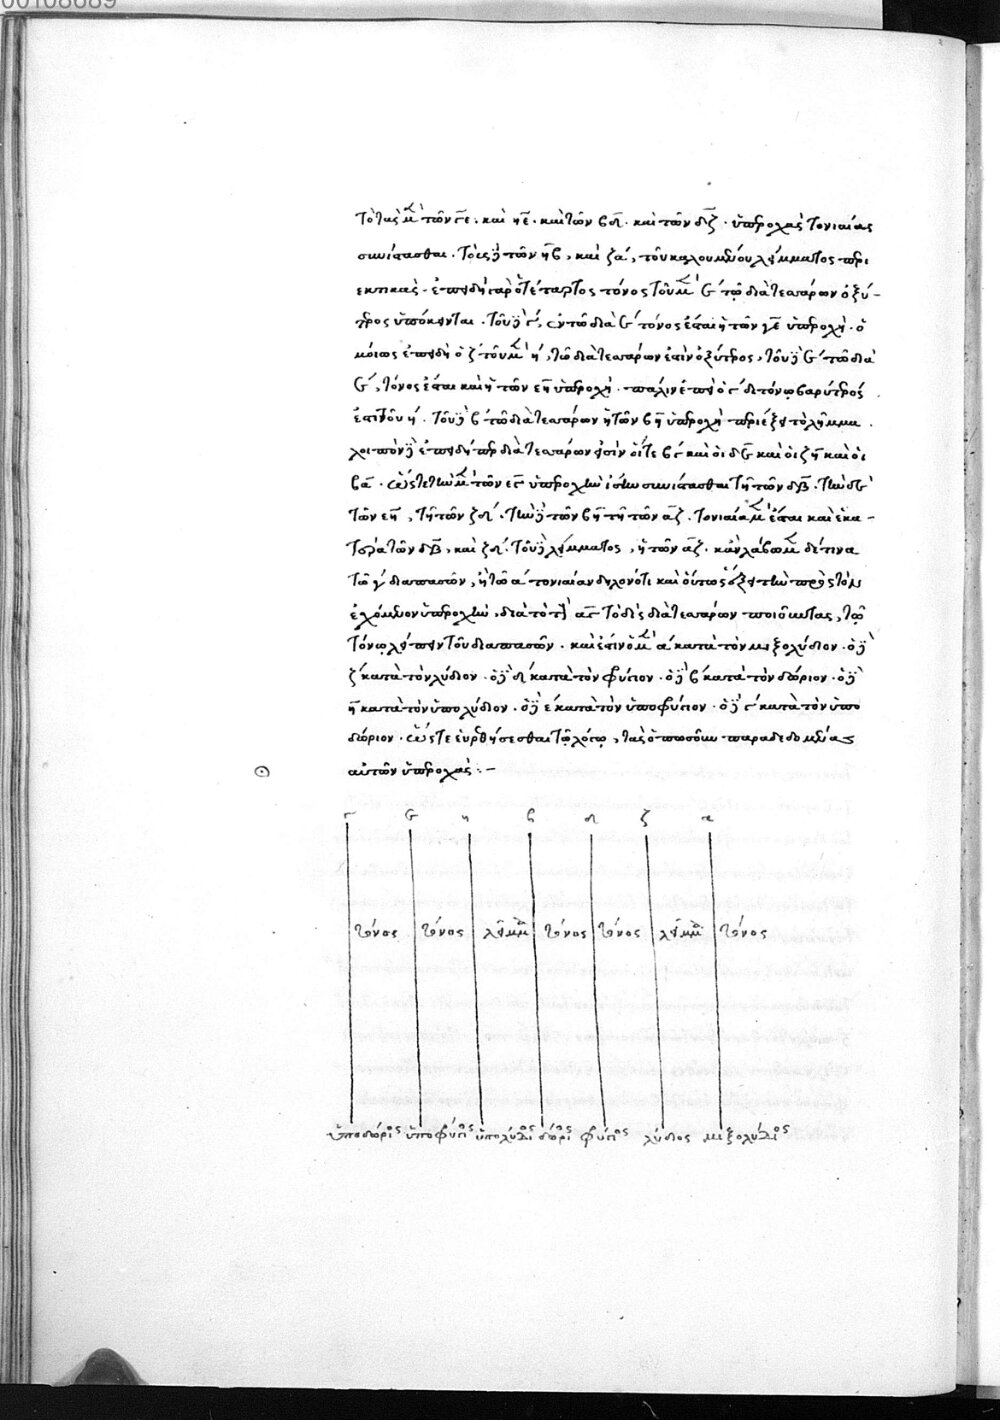 00108689
τὸ τὰς μ̀ τῶν ϛε. καὶ ηε̄. καὶ τῶν βδ. καὶ τῶν δζ. ὑπεροχὰς τονιαίας
συνίστασθαι. τὰς δὲ τῶν ηβ, καὶ ζα, τοῦ καλουμένου λείμματος περι
εκτικάς. ἐπειδὴ γὰρ ὅτε τόνος τοῦ μ̀ τῷ διὰ τεσσάρων ὀξύ-
τερος ὑπόκειται. τοῦ δὲ ϛ, ἐν τῷ διὰ τόνος ἔσται ἡ τῶν ὑπεροχή. ὁ
μοίως ἐπειδὴ ὁ ζ τοῦ μ̀ η, τῷ διὰ τεσσάρων ἐστὶν ὀξύτερος, τοῦ δὲ τῷ διὰ
τόνος ἔσται καὶ ἡ τῶν εη ὑπεροχή. πάλιν ἐπεὶ ὁ ϛ διτόνῳ βαρύτερός
ἐστι τοῦ η. τοῦ δὲ β τῷ διὰ τεσσάρων ἡ τῶν βη ὑπεροχὴ περιέξει τὸ λεῖμμα.
λοιπὸν δὲ ἐπειδήπερ διὰ τεσσάρων εἰσὶν οἵ τε βϛ καὶ οἱ δε καὶ οἱ ζη καὶ οἱ
βα. ὥστε τὴν μ̀ τῶν εϛ ὑπεροχὴν ἴσην συνίστασθαι τῇ τῶν δβ. τὴν δὲ
τῶν εη, τῇ τῶν ζδ. τὴν δὲ τῶν βη τῇ τῶν αζ. τονιαία μ̀ ἔσται καὶ ἑκα-
τέρα τῶν δβ, καὶ ζδ. τοῦ δὲ λείμματος, ἡ τῶν αζ. κἂν λάβωμεν δέ τινα
τῶν διαπασῶν, ἢ τῷ α τονιαίαν δηλονότι καὶ οὗτος ἕξει τὴν πρὸς τὸν
ἐχόμενον ὑπεροχὴν, διὰ τὸ τοὺς αϛ τὸ δὶς διὰ τεσσάρων ποιοῦντας, τῷ
τόνῳ λείπειν τοῦ διαπασῶν. καὶ ἔστιν ὁ μ̀ α κατὰ τὸν μιξολύδιον. ὁ δὲ
ζ κατὰ τὸν λύδιον. ὁ δὲ δ κατὰ τὸν φρύγιον. ὁ δὲ β κατὰ τὸν δώριον. ὁ δὲ
η κατὰ τὸν ὑπολύδιον. ὁ δὲ ε κατὰ τὸν ὑποφρύγιον. ὁ δὲ ϛ κατὰ τὸν ὑπο
δώριον. ὥστε εὑρεθήσεσθαι τῷ λόγῳ, τὰς ὁπωσοῦν παραδεδομένας
αὐτῶν ὑπεροχάς :-
ϛ ε η β δ ζ α
τόνος τόνος λεῖμμα τόνος τόνος λεῖμμα τόνος
ὑποδώριος ὑποφρύγιος ὑπολύδι δώρι φρύγιος λύδιος μιξολύδιος